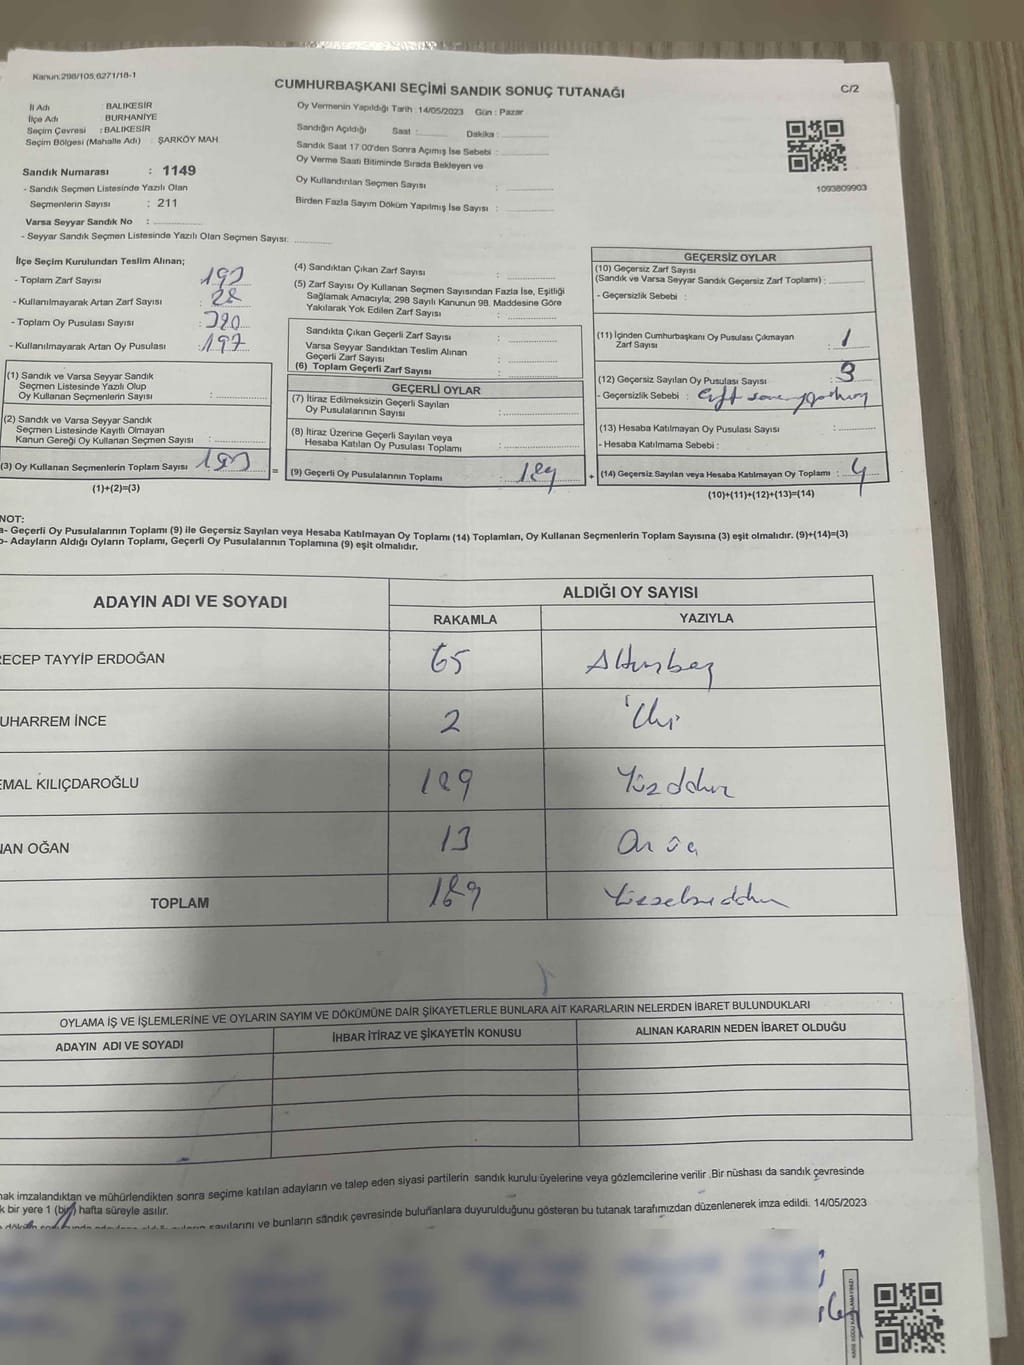 Kanun:298/105,6271/18-1
CUMHURBAŞKANI SEÇİMİ SANDIK SONUÇ TUTANAĞI
C/2
İl Adı : BALIKESİR
İlçe Adı BURHANİYE
Seçim Çevresi : BALIKESİR
Seçim Bölgesi (Mahalle Adı) : ŞARKÖY MAH
Sandık Numarası : 1149
- Sandık Seçmen Listesinde Yazılı Olan
Seçmenlerin Sayısı : 211
Varsa Seyyar Sandık No :
- Seyyar Sandık Seçmen Listesinde Yazılı Olan Seçmen Sayısı:
Oy Vermenin Yapıldığı Tarih :14/05/2023 Gün : Pazar
Sandığın Açıldığı Saat : Dakika :
Sandık Saat 17:00'den Sonra Açımış İse Sebebi :
Oy Verme Saati Bitiminde Sırada Bekleyen ve
Oy Kullandırılan Seçmen Sayısı :
Birden Fazla Sayım Döküm Yapılmış İse Sayısı :
1093809903
İlçe Seçim Kurulundan Teslim Alınan;
- Toplam Zarf Sayısı
- Kullanılmayarak Artan Zarf Sayısı : 28
- Toplam Oy Pusulası Sayısı :
- Kullanılmayarak Artan Oy Pusulası : 197
(1) Sandık ve Varsa Seyyar Sandık
Seçmen Listesinde Yazılı Olup
Oy Kullanan Seçmenlerin Sayısı :
(2) Sandık ve Varsa Seyyar Sandık
Seçmen Listesinde Kayıtlı Olmayan
Kanun Gereği Oy Kullanan Seçmen Sayısı :
(3) Oy Kullanan Seçmenlerin Toplam Sayısı 193 =
(1)+(2)=(3)
(4) Sandıktan Çıkan Zarf Sayısı :
(5) Zarf Sayısı Oy Kullanan Seçmen Sayısından Fazla İse, Eşitliği
Sağlamak Amacıyla; 298 Sayılı Kanunun 98. Maddesine Göre
Yakılarak Yok Edilen Zarf Sayısı :
Sandıkta Çıkan Geçerli Zarf Sayısı :
Varsa Seyyar Sandıktan Teslim Alınan
Geçerli Zarf Sayısı :
(6) Toplam Geçerli Zarf Sayısı :
GEÇERLİ OYLAR
(7) İtiraz Edilmeksizin Geçerli Sayılan
Oy Pusulalarının Sayısı :
(8) İtiraz Üzerine Geçerli Sayılan veya
Hesaba Katılan Oy Pusulası Toplamı :
(9) Geçerli Oy Pusulalarının Toplamı : 189 +
GEÇERSİZ OYLAR
(10) Geçersiz Zarf Sayısı
(Sandık ve Varsa Seyyar Sandık Geçersiz Zarf Toplamı) :
- Geçersizlik Sebebi :
(11) İçinden Cumhurbaşkanı Oy Pusulası Çıkmayan
Zarf Sayısı : 1
(12) Geçersiz Sayılan Oy Pusulası Sayısı : 3
- Geçersizlik Sebebi :
(13) Hesaba Katılmayan Oy Pusulası Sayısı :
- Hesaba Katılmama Sebebi :
(14) Geçersiz Sayılan veya Hesaba Katılmayan Oy Toplamı : 4
(10)+(11)+(12)+(13)=(14)
NOT:
a- Geçerli Oy Pusulalarının Toplamı (9) ile Geçersiz Sayılan veya Hesaba Katılmayan Oy Toplamı (14) Toplamları, Oy Kullanan Seçmenlerin Toplam Sayısına (3) eşit olmalıdır. (9)+(14)=(3)
b- Adayların Aldığı Oyların Toplamı, Geçerli Oy Pusulalarının Toplamına (9) eşit olmalıdır.
ADAYIN ADI VE SOYADI ALDIĞI OY SAYISI
RAKAMLA YAZIYLA
RECEP TAYYİP ERDOĞAN 65 Altmışbeş
UHARREM İNCE 2 İki
EMAL KILIÇDAROĞLU 109 Yüzdokuz
NAN OĞAN 13 On üç
TOPLAM 189 Yüzseksendokuz
OYLAMA İŞ VE İŞLEMLERİNE VE OYLARIN SAYIM VE DÖKÜMÜNE DAİR ŞİKAYETLERLE BUNLARA AİT KARARLARIN NELERDEN İBARET BULUNDUKLARI
ADAYIN ADI VE SOYADI İHBAR İTİRAZ VE ŞİKAYETİN KONUSU ALINAN KARARIN NEDEN İBARET OLDUĞU
nak imzalandıktan ve mühürlendikten sonra seçime katılan adayların ve talep eden siyasi partilerin sandık kurulu üyelerine veya gözlemcilerine verilir .Bir nüshası da sandık çevresinde
k bir yere 1 (bir) hafta süreyle asılır.
sayılarını ve bunların sandık çevresinde bulunanlara duyurulduğunu gösteren bu tutanak tarafımızdan düzenlenerek imza edildi. 14/05/2023